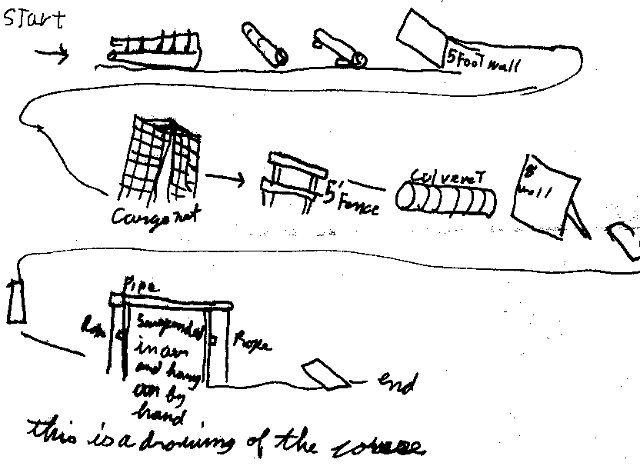 Start
5 Foot wall
Cargo net
5' Fence
Culvert
8'
wall
Pipe
Rope
Suspended
in air
and hang
on by
hand
Rope
end
this is a drawing of the course